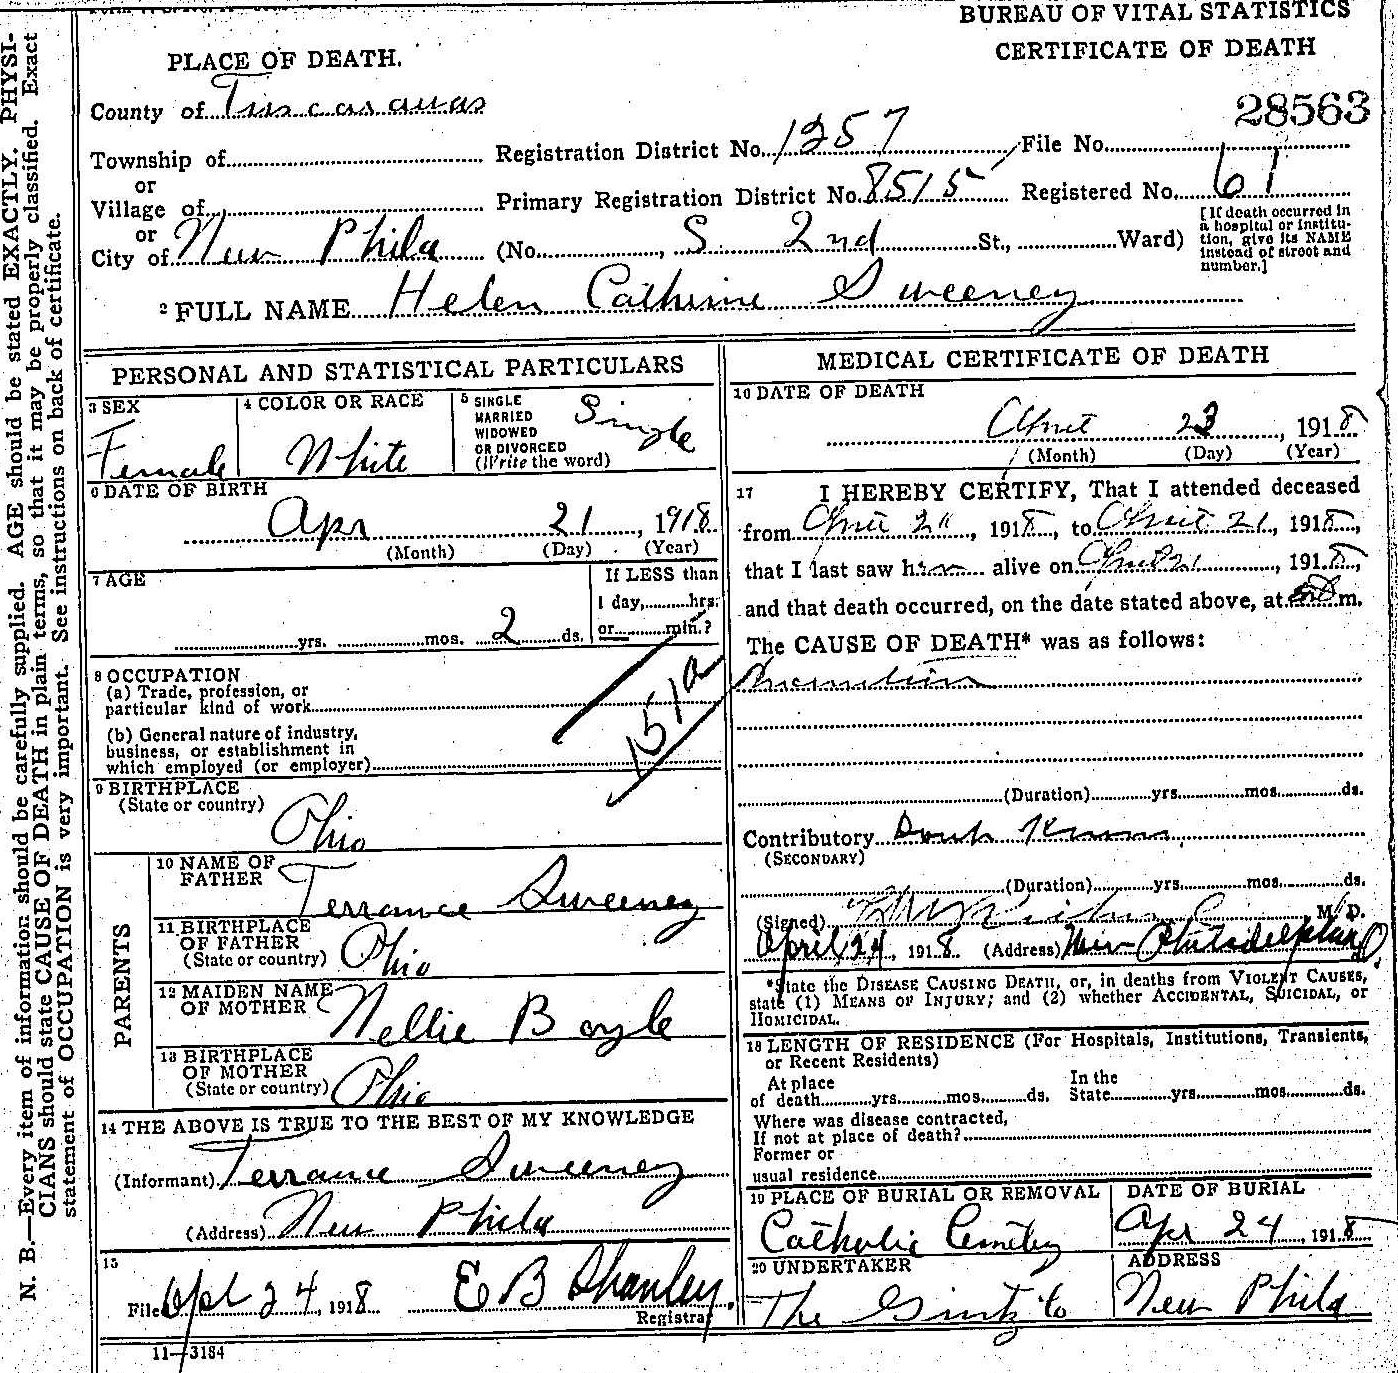 BUREAU OF VITAL STATISTICS
CERTIFICATE OF DEATH
PLACE OF DEATH.
28563
County of Tuscarawas
Township of Registration District No. 1257 File No.
or
Village of Primary Registration District No. 8515 Registered No. 61
or
City of New Phila (No. , S. 2nd St., Ward)
[If death occurred in
a hospital or institu-
tion, give its NAME
instead of street and
number.]
2 FULL NAME Helen Catherine Sweeney
PERSONAL AND STATISTICAL PARTICULARS
3 SEX
Female
4 COLOR OR RACE
White
5 SINGLE
MARRIED
WIDOWED
OR DIVORCED
(Write the word)
Single
6 DATE OF BIRTH
Apr 21, 1918
(Month) (Day) (Year)
7 AGE
yrs. mos. 2 ds.
If LESS than
1 day, hrs.
or min.?
8 OCCUPATION
(a) Trade, profession, or
particular kind of work
(b) General nature of industry,
business, or establishment in
which employed (or employer)
151a
9 BIRTHPLACE
(State or country)
Ohio
PARENTS
10 NAME OF
FATHER
Terrance Sweeney
11 BIRTHPLACE
OF FATHER
(State or country)
Ohio
12 MAIDEN NAME
OF MOTHER
Nellie Boyle
13 BIRTHPLACE
OF MOTHER
(State or country)
Ohio
14 THE ABOVE IS TRUE TO THE BEST OF MY KNOWLEDGE
(Informant) Terrance Sweeney
(Address) New Phila
15
Filed Apl 24, 1918 E B Shanley.
Registrar
11—3184
MEDICAL CERTIFICATE OF DEATH
16 DATE OF DEATH
April 23, 1918
(Month) (Day) (Year)
17 I HEREBY CERTIFY, That I attended deceased
from April , 1918, to April 21, 1918,
that I last saw h alive on April 21, 1918,
and that death occurred, on the date stated above, at m.
The CAUSE OF DEATH* was as follows:
(Duration) yrs. mos. ds.
Contributory
(SECONDARY)
(Duration) yrs. mos. ds.
(Signed) M. D.
April 24, 1918 (Address) New Philadelphia O.
*State the DISEASE CAUSING DEATH, or, in deaths from VIOLENT CAUSES,
state (1) MEANS OF INJURY; and (2) whether ACCIDENTAL, SUICIDAL, or
HOMICIDAL.
18 LENGTH OF RESIDENCE (For Hospitals, Institutions, Transients,
or Recent Residents)
At place
of death yrs. mos. ds.
In the
State yrs. mos. ds.
Where was disease contracted,
If not at place of death?
Former or
usual residence
19 PLACE OF BURIAL OR REMOVAL
Catholic Cemetery
DATE OF BURIAL
Apr 24, 1918
20 UNDERTAKER
The Gintz Co
ADDRESS
New Phila
N. B.—Every item of information should be carefully supplied. AGE should be stated EXACTLY. PHYSI-
CIANS should state CAUSE OF DEATH in plain terms, so that it may be properly classified. Exact
statement of OCCUPATION is very important. See instructions on back of certificate.